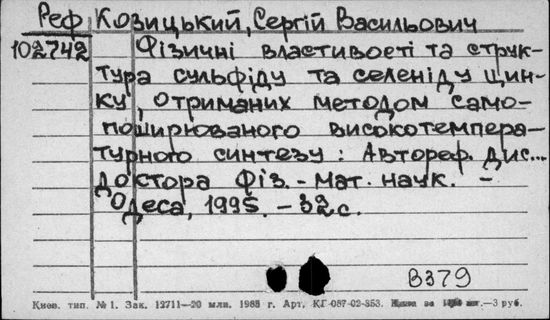 Реф Козицький, Сергій Васильович
102742 Фізичні властивості та струк-
тура сульфіду та селеніду цин-
ку, отриманих методом само-
поширюваного високотемпера-
турного синтезу: Автореф. дис...
доктора фіз.-мат. наук. -
Одеса, 1995. - 32 с.
В379
Киев. тип. № 1. Зак. 12711—20 млн. 1985 г. Арт. КГ-087-02-353. за —3 руб.